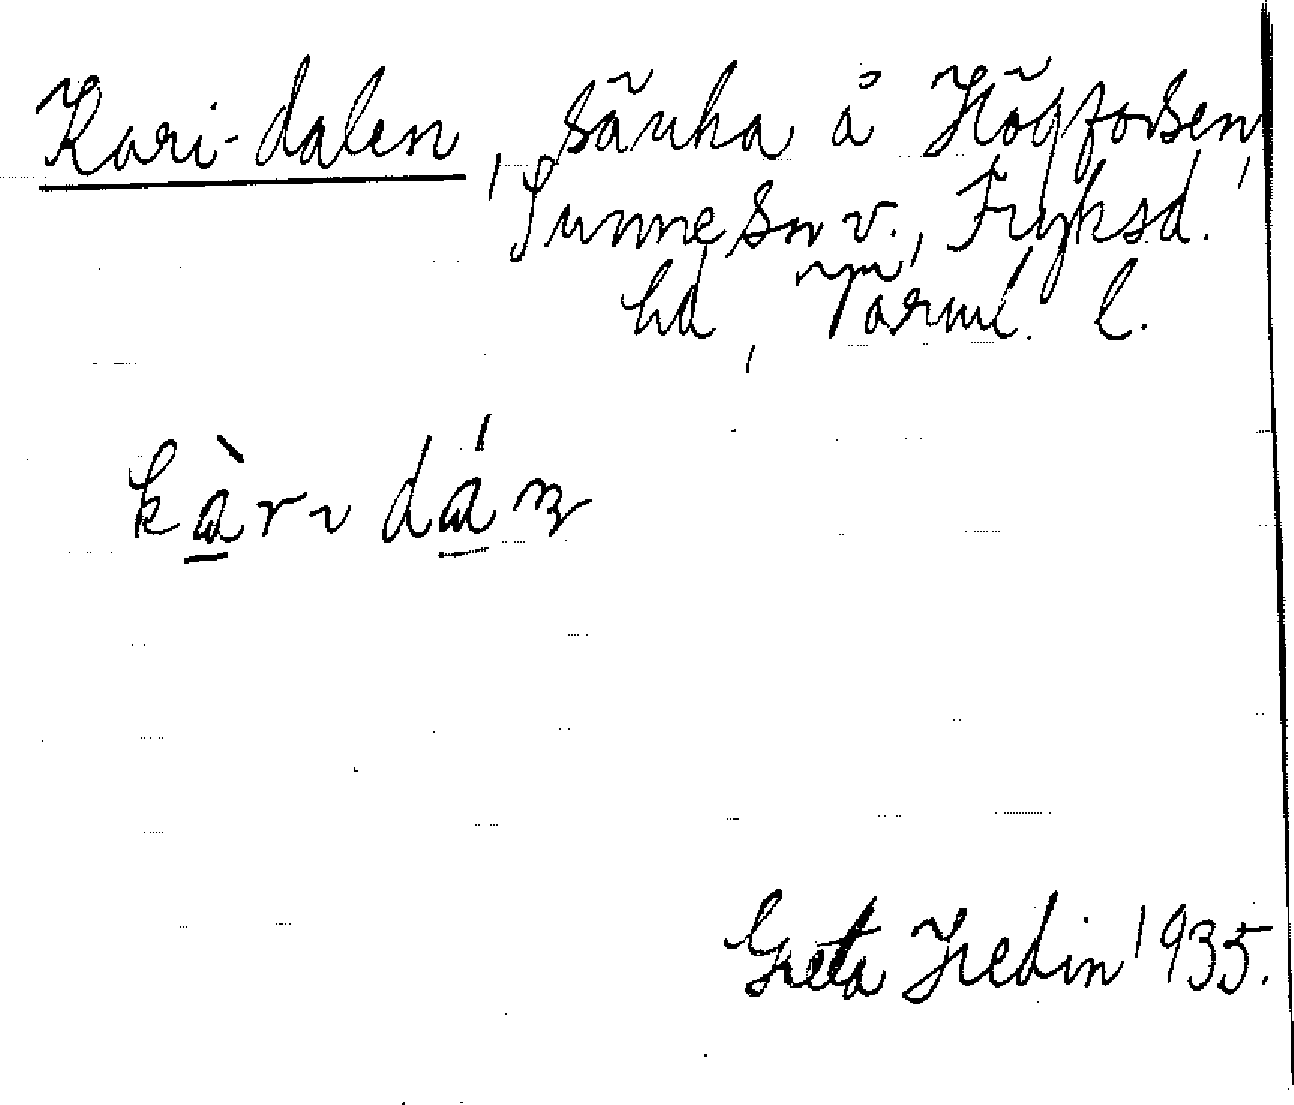 Kari-dalen, sänka å Högforsen,
Sunne sn v., Fryksd.
hd, Värml. l.
kàrı dá
Greta Hedin 1935.